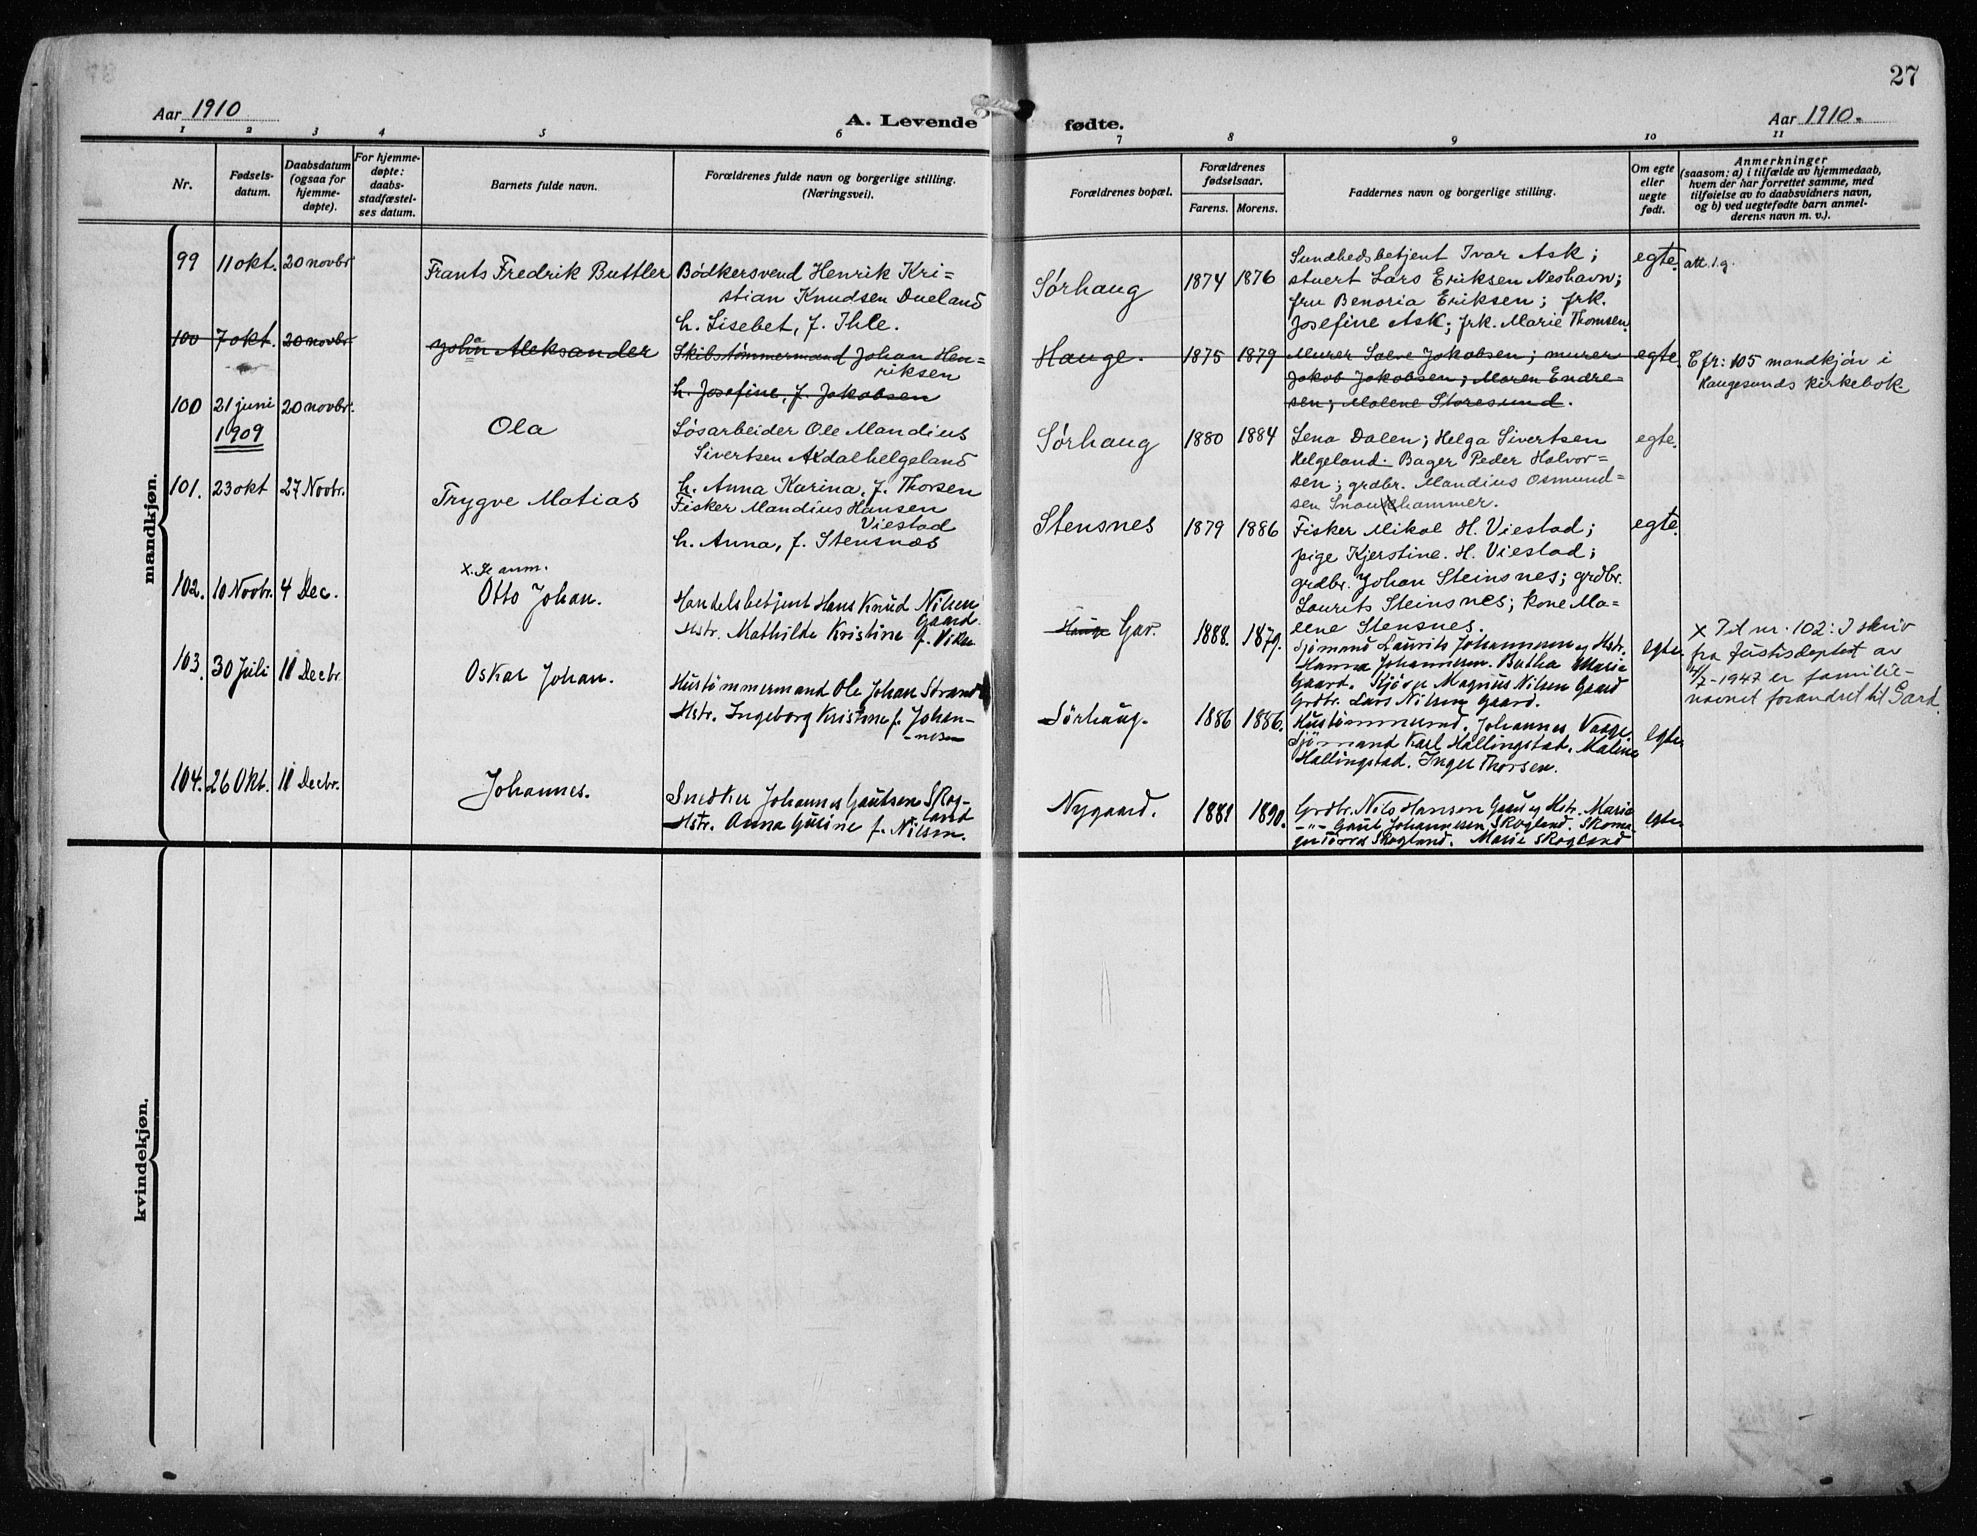 27
Aar 1910
A. Levende fødte.
Aar 1910.
1 2 3 4 5 6 7 8 9 10 11
Nr.
Fødsels-
datum.
Daabsdatum
(ogsaa for
hjemme-
døpte).
For hjemme-
døpte:
daabs-
stadfæstel-
ses datum.
Barnets fulde navn.
Forældrenes fulde navn og borgerlige stilling.
(Næringsvei).
Forældrenes bopæl.
Forældrenes
fødselsaar.
Farens. Morens.
Faddernes navn og borgerlige stilling.
Om egte
eller
uegte
født.
Anmerkninger
(saasom: a) i tilfælde av hjemmedaab,
hvem der har forrettet samme, med
tilføielse av to daabsvidners navn,
og b) ved uegtefødte barn anmel-
derens navn m. v.).
mandkjøn.
99 11 okt. 20 novbr Frants Fredrik Buttler
Bödkersvend Henrik Kri-
stian Knudsen Dueland
h. Lisebet, f. Ihle.
Sørhaug 1874 1876
Sundhedsbetjent Ivar Ask;
stuert Lars Eriksen Neshavn;
fru Benoria Eriksen; frk.
Josefine Ask; frk. Marie Thomsen.
egte. att. l. g.
100 7 okt. 20 novbr Johan Aleksander
Skibstømmermand Johan Hen-
riksen
h. Josefine, f. Jakobsen
Hauge. 1875 1879
Murer Salve Jakobsen; murer
Jakob Jakobsen; Maren Endre-
sen; Malene Storesund.
egte.
E fr: 105 mandkjön i
Haugesunds kirkebok
100 21 juni
1909
20 novbr. Ola
Løsarbeider Ole Mandius
Sivertsen Axdalhelgeland
h. Anna Karina, f. Thorsen
Sørhaug 1880 1884
Lena Dalen; Helga Sivertsen
Helgeland. Bager Peder Halvor-
sen; grdbr. Mandius Osmund-
sen
egte.
101. 23 okt 27 Novbr. Trygve Matias
Fisker Mandius Hansen
Viestad
h. Anna, f. Stensnæs
Stensnes 1879 1886
Fisker Mikal H. Viestad;
pige Kjerstine. H. Viestad;
grdbr. Johan Steinsnes; grdbr.
Laurits Steinsnes; kone Ma-
lene Stensnes.
egte.
x. Se anm.
102. 10 Novbr. 4 Dec. Otto Johan.
Handelsbetjent Hans Knud Nilsen
Gaard.
Hstr. Mathilde Kristine f. Vikse
Hauge Gar. 1888. 1879.
Sjømand Laurits Johannesen og Hstr.
Hanna Johannesen. Bertha Marie
Gaard. Skjöge Magnus Nilsen Gaard
Grdbr. Lars Nilsen Gaard.
egte.
x Til nr. 102: I skriv
fra Justisdeptet av
/7-1947 er familie-
navnet forandret til Gard.
103. 30 Juli 11 Decbr. Oskar Johan.
Hustømmermand Ole Johan Strand
Hstr. Ingeborg Kristine f. Johan-
nesen
Sörhaug. 1886 1886.
Hustømmermd. Johannes
Sjömand Karl Hallingstad. Malene
Hallingstad. Inger Thorsen.
egte.
104. 26 Okt. 11 Decbr. Johannes.
Snedker Johannes Gautsen Skog-
land
Hstr. Anna Gurine f. Nilsen.
Nygaard. 1881 1890.
Grdbr. Nils Hansen Gaard og Hstr. Maria
-"- Gaut Johannesen Skogland. Skoma-
ger Skogland. Marie Skogland
egte.
kvindekjøn.